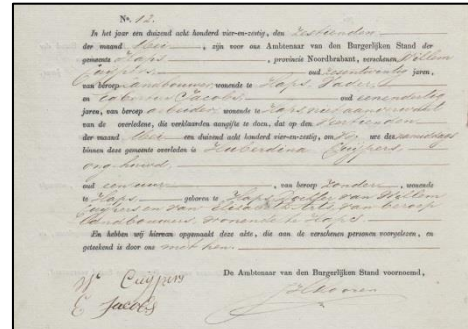 No. 12.
In het jaar een duizend acht honderd vier-en-zestig, den zestienden
der maand Mei, zijn voor ons Ambtenaar van den Burgerlijken Stand der
gemeente Haps, provincie Noordbrabant, verschenen Willem
Cuijpers oud zesentwintig jaren,
van beroep landbouwer, wonende te Haps, Vader
en Jacobs oud
jaren, van beroep arbeider wonende te Haps
van de overledene, die verklaarden aangifte te doen, dat op den zestienden
der maand Mei een duizend acht honderd vier-en-zestig, om ure des
binnen deze gemeente overleden is Huberdina Cuijpers
ongehuwd,
oud een uur, van beroep zonder, wonende
te Haps geboren te Haps, dochter van Willem
Cuijpers en van van beroep
landbouwers, wonende te Haps
En hebben wij hiervan opgemaakt deze akte, die aan de verschenen personen voorgelezen, en
geteekend is door ons met hen
De Ambtenaar van den Burgerlijken Stand voornoemd,
W. Cuijpers
E Jacobs